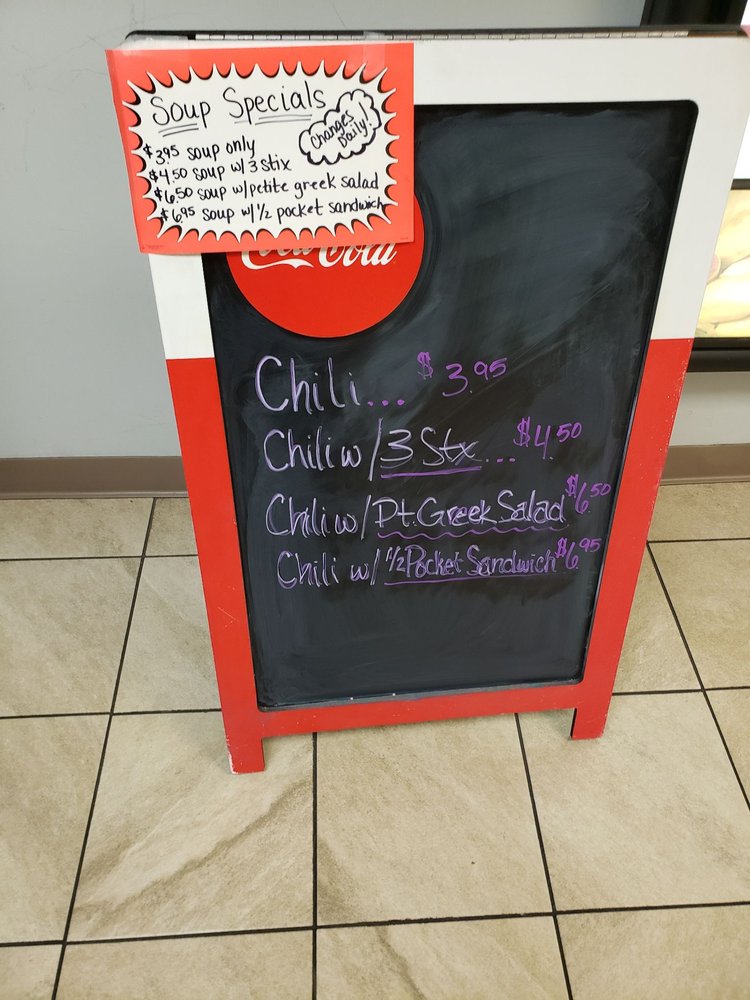 Soup Specials
Changes
Daily!
$3.95 soup only
$4.50 soup w/3 stix
$6.50 soup w/petite greek salad
$6.95 soup w/ 1/2 pocket sandwich
Coca-Cola
Chili... $3.95
Chili w/3 Stx... $4.50
Chili w/Pt. Greek Salad $6.50
Chili w/ 1/2 Pocket Sandwich $6.95